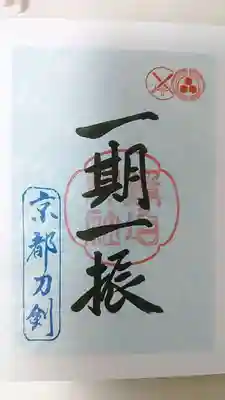 一期一振
京都刀剣